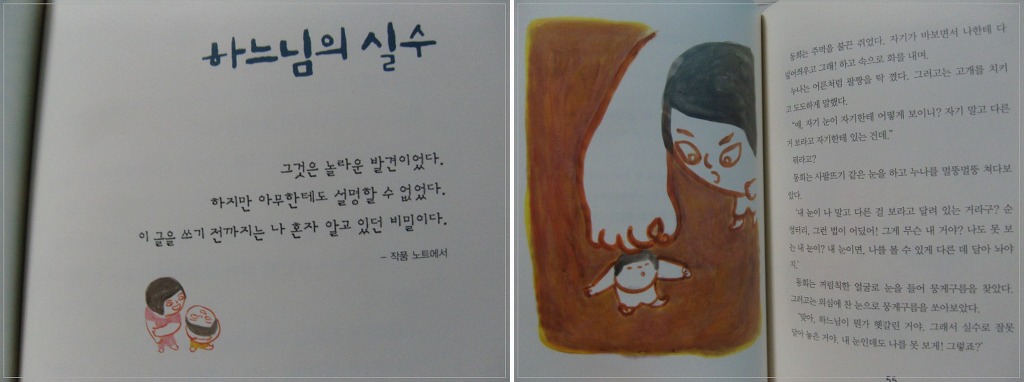 하느님의 실수
그것은 놀라운 발견이었다.
하지만 아무한테도 설명할 수 없었다.
이 글을 쓰기 전까지는 나 혼자 알고 있던 비밀이다.
- 작품 노트에서
동희는 주먹을 불끈 쥐었다. 자기가 바보면서 나한테 다
뒤집어씌우고 그래! 하고 속으로 화를 내며.
누나는 어른처럼 팔짱을 딱 꼈다. 그러고는 고개를 치키
고 도도하게 말했다.
"얘, 자기 눈이 자기한테 어떻게 보이니? 자기 말고 다른
거 보라고 자기한테 있는 건데."
뭐라고?
동희는 사팔뜨기 같은 눈을 하고 누나를 멀뚱멀뚱 쳐다보
았다.
'내 눈이 나 말고 다른 걸 보라고 달려 있는 거라구? 순
엉터리, 그런 법이 어딨어! 그게 무슨 내 거야? 나도 못 보
는 내 눈이? 내 눈이면, 나를 볼 수 있게 다른 데 달아 놔야
지.'
동희는 꺼림칙한 얼굴로 눈을 들어 뭉게구름을 찾았다.
그러고는 의심에 찬 눈으로 뭉게구름을 쏘아보았다.
'맞아, 하느님이 뭔가 헷갈린 거야. 그래서 실수로 잘못
달아 놓은 거야. 내 눈인데도 나를 못 보게! 그렇죠?'
55